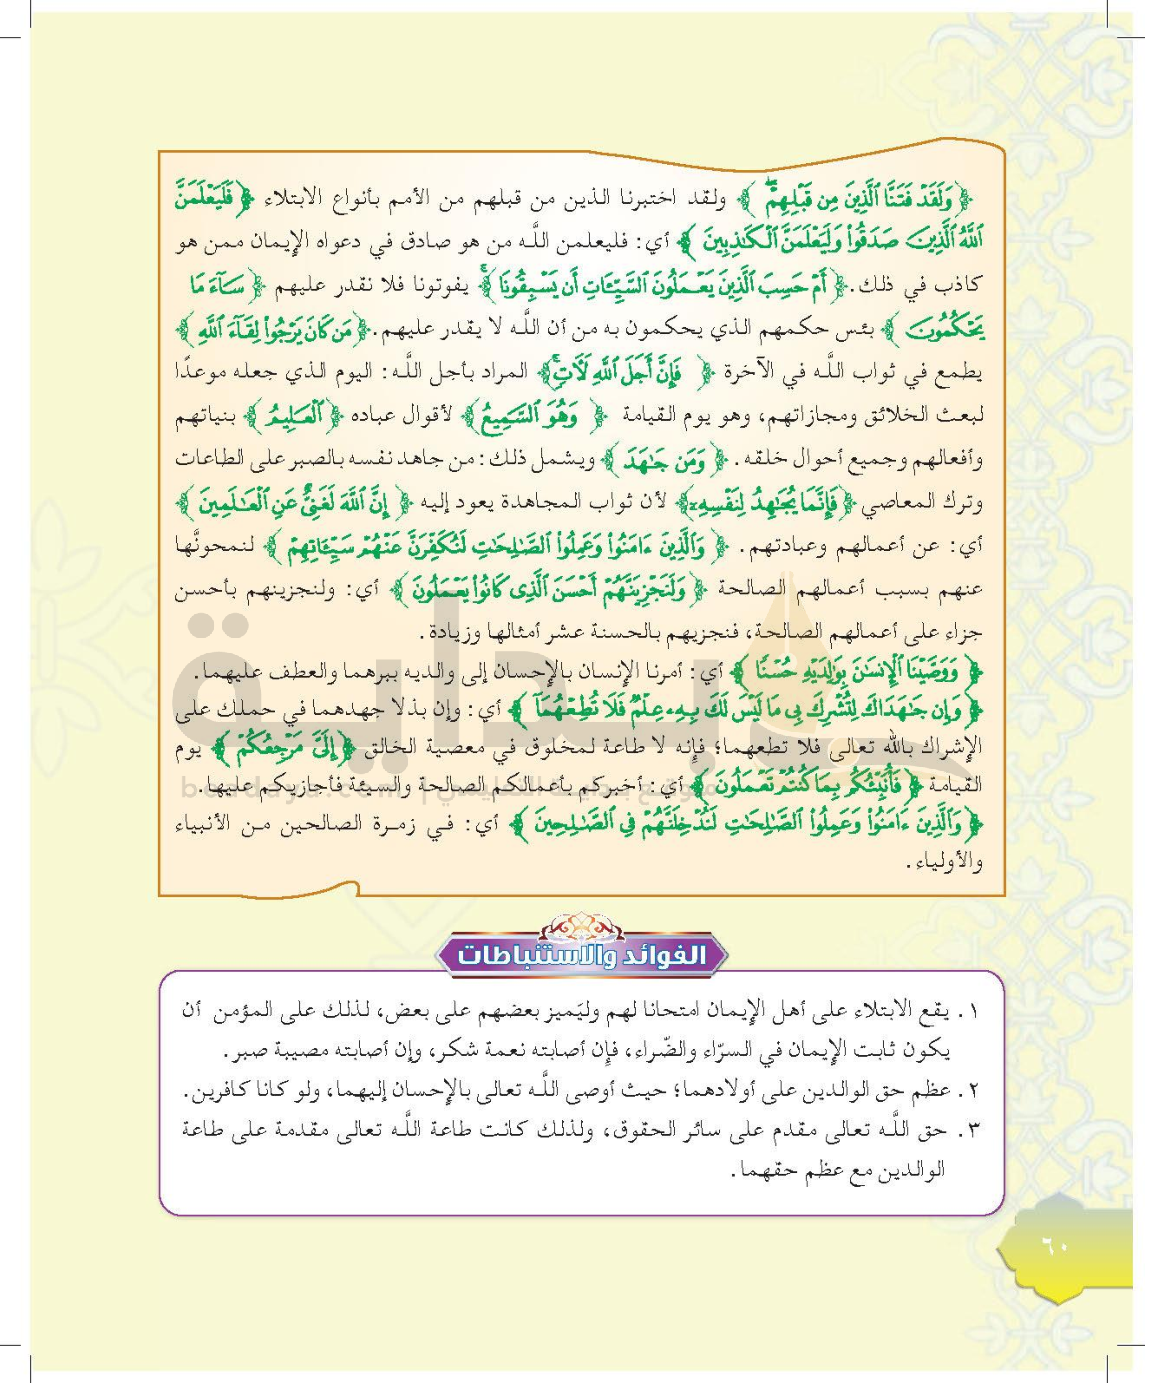 ﴿ وَلَقَدْ فَتَنَّا ٱلَّذِينَ مِن قَبْلِهِمْ ۖ ﴾ ولقد اختبرنا الذين من قبلهم من الأمم بأنواع الابتلاء ﴿ فَلَيَعْلَمَنَّ
ٱللَّهُ ٱلَّذِينَ صَدَقُوا۟ وَلَيَعْلَمَنَّ ٱلْكَـٰذِبِينَ ﴾ أي: فليعلمن اللَّه من هو صادق في دعواه الإيمان ممن هو
كاذب في ذلك. ﴿ أَمْ حَسِبَ ٱلَّذِينَ يَعْمَلُونَ ٱلسَّيِّـَٔاتِ أَن يَسْبِقُونَا ۚ ﴾ يفوتونا فلا نقدر عليهم ﴿ سَآءَ مَا
يَحْكُمُونَ ﴾ بئس حكمهم الذي يحكمون به من أن اللَّه لا يقدر عليهم. ﴿ مَن كَانَ يَرْجُوا۟ لِقَآءَ ٱللَّهِ ﴾
يطمع في ثواب اللَّه في الآخرة ﴿ فَإِنَّ أَجَلَ ٱللَّهِ لَـَٔاتٍ ۚ ﴾ المراد بأجل اللَّه: اليوم الذي جعله موعدًا
لبعث الخلائق ومجازاتهم، وهو يوم القيامة ﴿ وَهُوَ ٱلسَّمِيعُ ﴾ لأقوال عباده ﴿ ٱلْعَلِيمُ ﴾ بنياتهم
وأفعالهم وجميع أحوال خلقه. ﴿ وَمَن جَـٰهَدَ ﴾ ويشمل ذلك: من جاهد نفسه بالصبر على الطاعات
وترك المعاصي ﴿ فَإِنَّمَا يُجَـٰهِدُ لِنَفْسِهِۦٓ ﴾ لأن ثواب المجاهدة يعود إليه ﴿ إِنَّ ٱللَّهَ لَغَنِىٌّ عَنِ ٱلْعَـٰلَمِينَ ﴾
أي: عن أعمالهم وعبادتهم. ﴿ وَٱلَّذِينَ ءَامَنُوا۟ وَعَمِلُوا۟ ٱلصَّـٰلِحَـٰتِ لَنُكَفِّرَنَّ عَنْهُمْ سَيِّـَٔاتِهِمْ ﴾ لنمحونَّها
عنهم بسبب أعمالهم الصالحة ﴿ وَلَنَجْزِيَنَّهُمْ أَحْسَنَ ٱلَّذِى كَانُوا۟ يَعْمَلُونَ ﴾ أي: ولنجزينهم بأحسن
جزاء على أعمالهم الصالحة، فنجزيهم بالحسنة عشر أمثالها وزيادة.
﴿ وَوَصَّيْنَا ٱلْإِنسَـٰنَ بِوَٰلِدَيْهِ حُسْنًا ﴾ أي: أمرنا الإنسان بالإحسان إلى والديه ببرهما والعطف عليهما.
﴿ وَإِن جَـٰهَدَاكَ لِتُشْرِكَ بِى مَا لَيْسَ لَكَ بِهِۦ عِلْمٌ فَلَا تُطِعْهُمَآ ﴾ أي: وإن بذلا جهدهما في حملك على
الإشراك بالله تعالى فلا تطعهما؛ فإنه لا طاعة لمخلوق في معصية الخالق ﴿ إِلَىَّ مَرْجِعُكُمْ ﴾ يوم
القيامة ﴿ فَأُنَبِّئُكُم بِمَا كُنتُمْ تَعْمَلُونَ ﴾ أي: أخبركم بأعمالكم الصالحة والسيئة فأجازيكم عليها.
﴿ وَٱلَّذِينَ ءَامَنُوا۟ وَعَمِلُوا۟ ٱلصَّـٰلِحَـٰتِ لَنُدْخِلَنَّهُمْ فِى ٱلصَّـٰلِحِينَ ﴾ أي: في زمرة الصالحين من الأنبياء
والأولياء.
الفوائد والاستنباطات
١. يقع الابتلاء على أهل الإيمان امتحانا لهم وليَميز بعضهم على بعض، لذلك على المؤمن أن
يكون ثابت الإيمان في السرّاء والضّراء، فإن أصابته نعمة شكر، وإن أصابته مصيبة صبر.
٢. عظم حق الوالدين على أولادهما؛ حيث أوصى اللَّه تعالى بالإحسان إليهما، ولو كانا كافرين.
٣. حق اللَّه تعالى مقدم على سائر الحقوق، ولذلك كانت طاعة اللَّه تعالى مقدمة على طاعة
الوالدين مع عظم حقهما.
٦٠
بداية